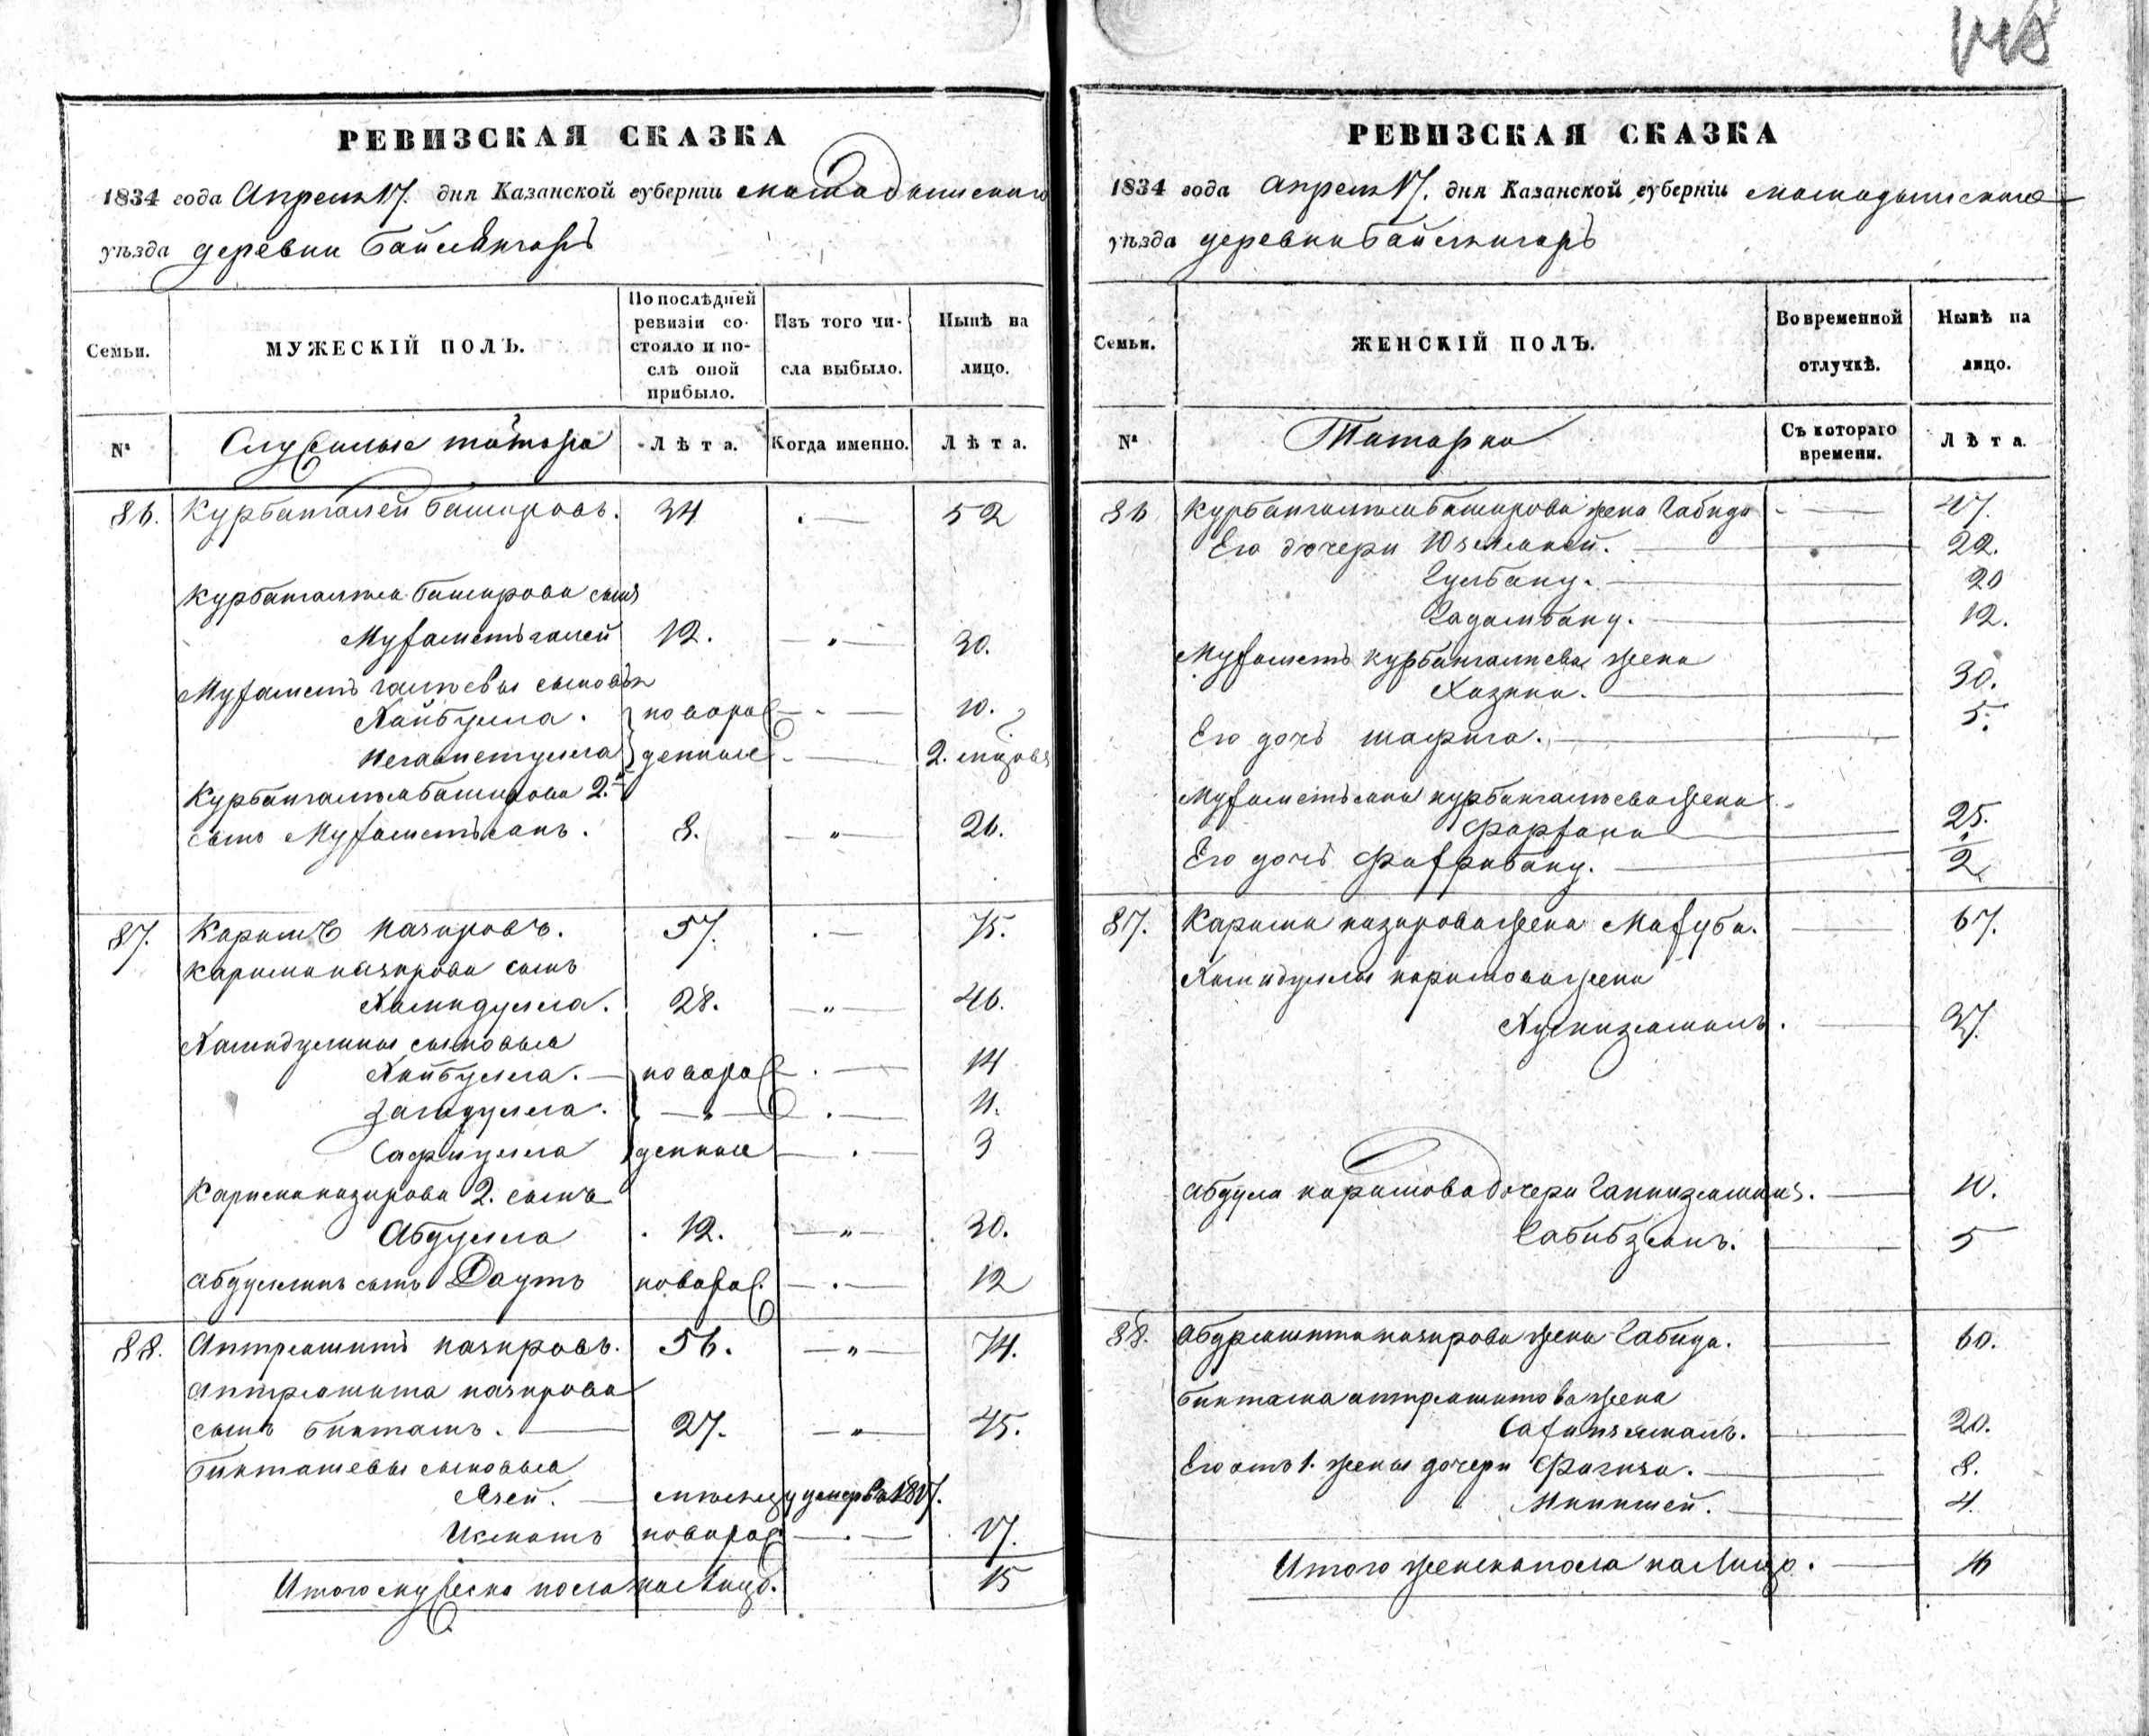 148
РЕВИЗСКАЯ СКАЗКА
1834 года Апреля 17. дня Казанской губерніи мамадышскаго
уѣзда деревни Байлянгаръ
Семьи.
МУЖЕСКІЙ ПОЛЪ.
По послѣдней ревизіи состояло и послѣ оной прибыло.
Изъ того числа выбыло.
Нынѣ на лицо.
№
Служилые татара
Лѣта.
Когда именно.
Лѣта.
86. Курбангалей Башировъ. 34 52
Курбангалея Баширова сынъ
Мухаметьгалей 12. 30.
Мухаметь галеевы сыновья
Хайбулла. новорож 10.
Негаметулла денные 2. мѣсяца
Курбангалея Баширова 2.й
сынъ Мухаметьсанъ. 8. 26.
87. Каримъ Назировъ. 57. 75.
Карима назирова сынъ
Хамидулла. 28. 46.
Хамидуллины сыновья
Хайбулла. новорож 14
Загидулла. 11.
Сафиулла денные 3
Карима назирова 2. сынъ
Абдулла 12. 30.
Абдуллинъ сынъ Даутъ новорож. 12
88. Аптряшитъ назировъ. 56. 74.
Аптряшита назирова
сынъ Бикташъ. 27. 45.
Бикташевы сыновья
Азей. умеръ в 1817.
Икматъ новорож 17.
Итого мужеска пола на лицо. 15
РЕВИЗСКАЯ СКАЗКА
1834 года апреля 17. дня Казанской губерніи мамадышскаго
уѣзда деревни Байлянгаръ
Семьи.
ЖЕНСКІЙ ПОЛЪ.
Во временной отлучкѣ.
Нынѣ на лицо.
№
Татарки
Съ котораго времени.
Лѣта.
86 Курбангалея Баширова жена Габида 47.
Его дочери Юзлекей. 22.
Гулбану. 20
Бадамбану. 12.
Мухаметь курбангалеева жена
Хазина. 30.
Его дочь шафига. 5.
Мухаметьсана курбангалеева жена
Фархана 25.
Его дочь Фахрибану. 2
87. Карима назирова жена Махуба. 67.
Хамидуллы каримова жена
Хуснизямалъ. 37.
Абдула каримова дочери Ганизямалъ. 10.
Габибзянъ. 5
88. Абдряшита назирова жена Габида. 60.
Бикташа аптряшитова жена
Сахипзямалъ. 20.
Его отъ 1. жены дочери Фагиза. 8.
Миникей. 4.
Итого женска пола на лицо. 16